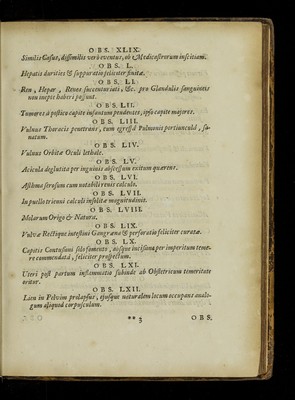 OBS. XLIX.
Similis Casus, dissimilis verò eventus, ob Medicastrorum inscitiam.
OBS. L.
Hepatis durities & suppuratio feliciter finita.
OBS. LI.
Ren, Hepar, Renes succenturiati, &c. pro Glandulis sanguineis
neu inepte haberi possunt.
OBS. LII.
Tumores à postico capite infantum pendentes, ipso capite majores.
OBS. LIII.
Vulnus Thoracis penetrans, cum egressâ Pulmonis portiunculâ, sa-
natum.
OBS. LIV.
Vulnus Orbitæ Oculi lethale.
OBS. LV.
Acicula deglutita per inguinis abscessum exitum quærens.
OBS. LVI.
Asthma strusum cum notabili renis calculo.
OBS. LVII.
In puello trienni calculi insolitæ magnitudinis.
OBS. LVIII.
Molarum Origo & Natura.
OBS. LIX.
Vulvæ Rectique intestini Gangræna & perforatio feliciter curatæ.
OBS. LX.
Capitis Contusioni solo fomento, absque incisione per imperitum teme-
re commendatâ, feliciter prospectum.
OBS. LXI.
Uteri post partum inflammatio subinde ab Obstetricum temeritate
oritur.
OBS. LXII.
Lien in Pelvim prolapsus, ejusque naturalem locum occupans analo-
gum aliquod corpusculum.
** 3 OBS.